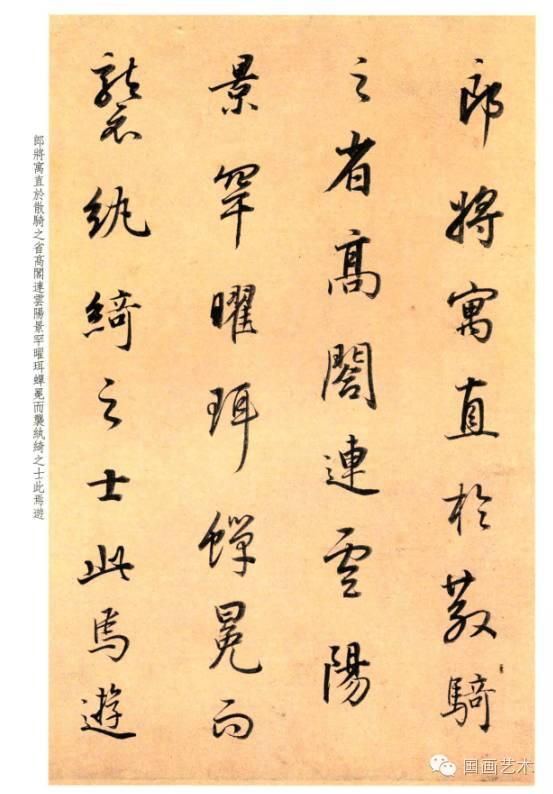 郎將寓直於散騎
之省高閣連雲陽
景罕曜珥蟬冕而
襲紈綺之士此焉遊
郎將寓直於散騎之省高閣連雲陽景罕曜珥蟬冕而襲紈綺之士此焉遊
国画艺术